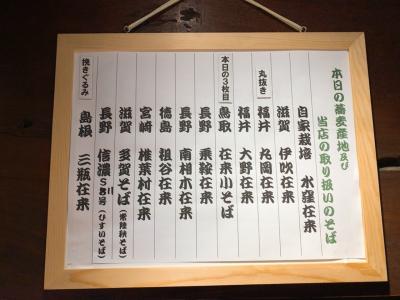 本日の蕎麦産地及び
当店の取り扱いのそば
自家栽培 水窪在来
滋賀 伊吹在来
丸抜き 福井 丸岡在来
福井 大野在来
本日の3枚目 鳥取 在来小そば
長野 乗鞍在来
長野 南相木在来
徳島 祖谷在来
宮崎 椎葉村在来
滋賀 多賀そば(常陸秋そば)
長野 信濃S8号(ひすいそば)
挽きぐるみ 島根 三瓶在来